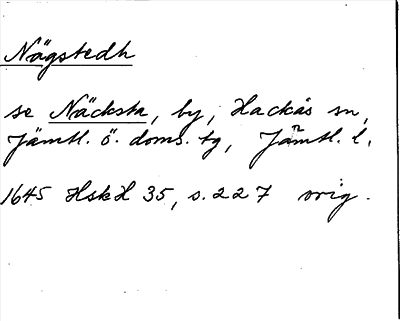 Nägstedh
se Näcksta, by, Hackås sn,
Jämtl. ö. doms. tg, Jämtl. l.
1645 HskH 35, s. 227 orig.